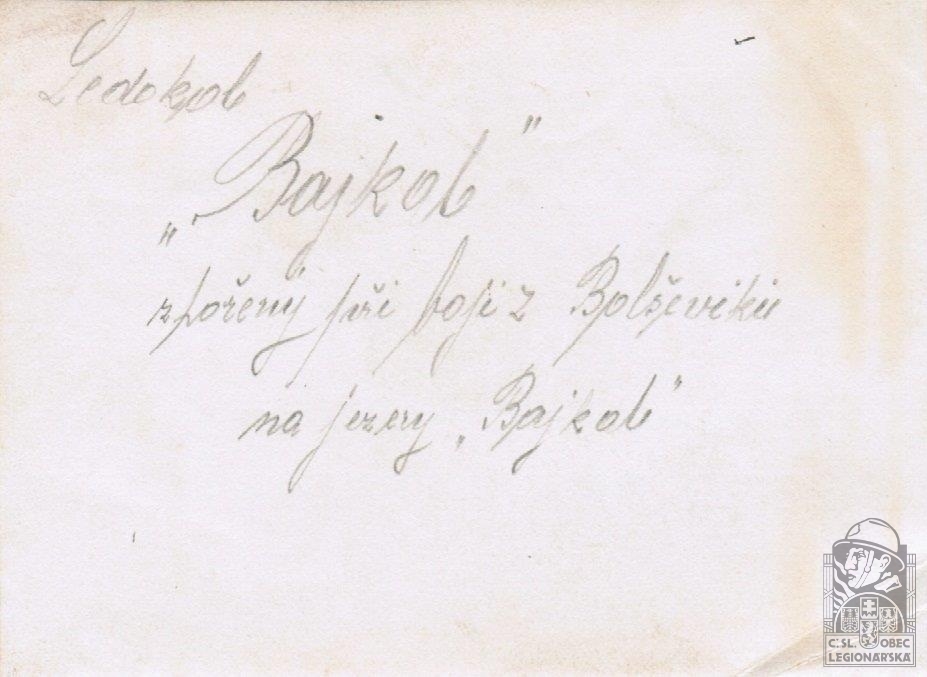 Ledokol
„Bajkal"
zpořený při boji z Bolševiků
na jezery „Bajkal"
Č:SL. OBEC
LEGIONÁŘSKÁ